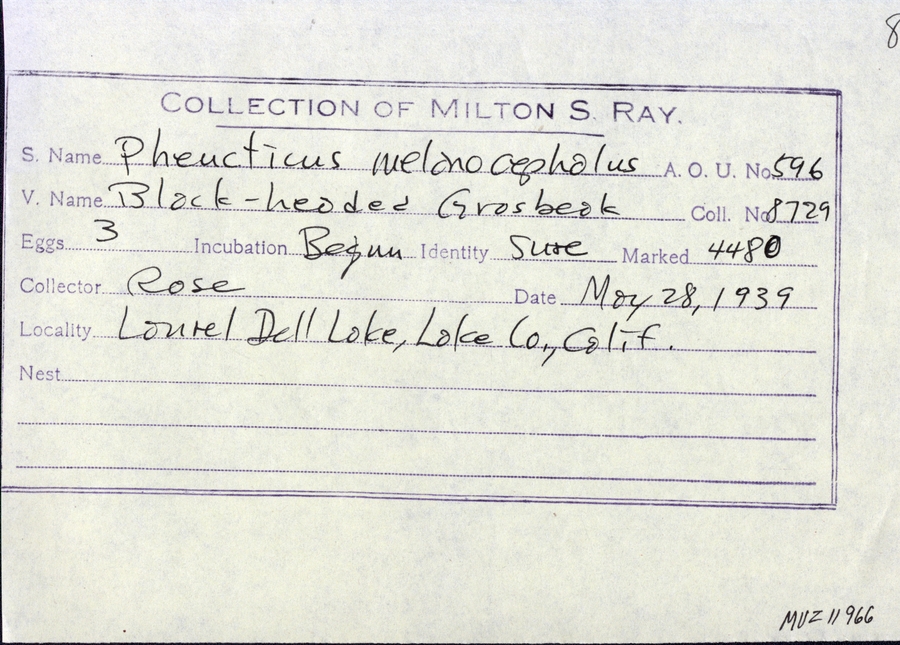 8
COLLECTION OF MILTON S. RAY.
S. Name Pheucticus melanocephalus A. O. U. No. 596
V. Name Black-headed Grosbeak Coll. No. 8729
Eggs 3 Incubation Begun Identity Sure Marked 4480
Collector Rose Date May 28, 1939
Locality Laurel Dell Lake, Lake Co., Calif.
Nest
MVZ 11966